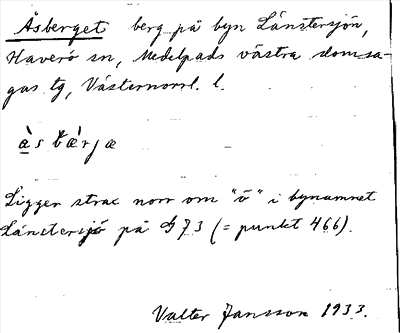 Åsberget berg på byn Länstersjön,
Haverö sn, Medelpads västra domsa-
gas tg, Västernorrl. l.
à̱s bæ̀rjæ
Ligger strax norr om "ö" i bynamnet
Länstersjö på G 73 (= punkt 466).
Valter Jansson 1933.